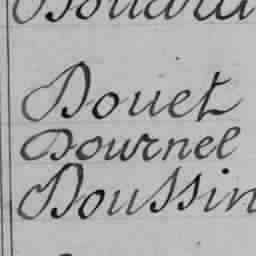 Douet
Dournel
Doussin